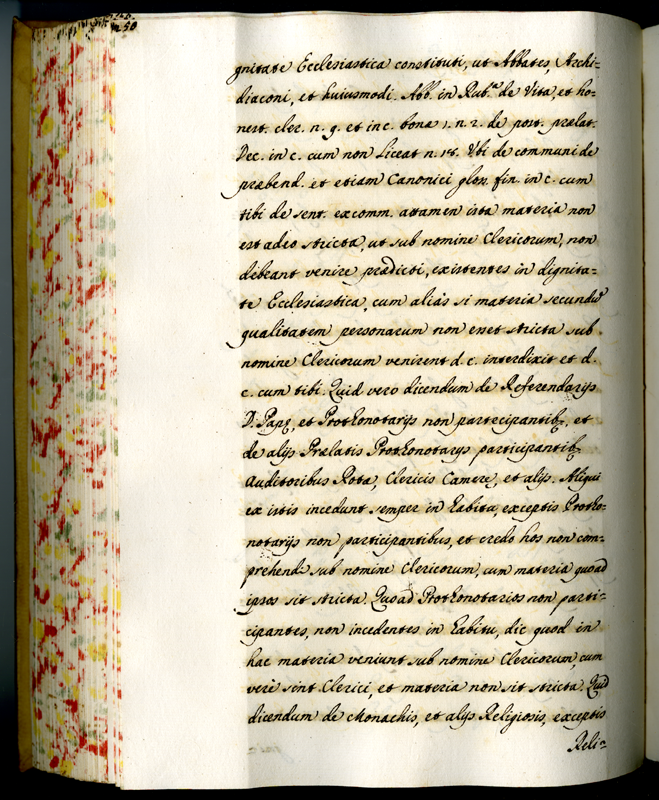 gnitate Ecclesiastica constituti, ut Abbates, Archi-
diaconi, et huiusmodi. Abb. in Rub.ᵃ de Vita, et ho-
nest. cler. n. 9. et in c. bonæ 1. n. 2. de post. prælat.
Dec. in c. cum non Liceat n. 18. Vbi de communi de
præbend. et etiam Canonici glos. fin. in c. cum
tibi de sent. excomm. attamen ista materia non
est adeo stricta, ut sub nomine Clericorum, non
debeant venire prædicti, existentes in dignita-
te Ecclesiastica, cum aliàs si materia secundũ
qualitatem personarum non esset stricta sub
nomine Clericorum venirent d. c. interdixit et d.
c. cum tibi. Quid vero dicendum de Referendarijs
D. Papę, et Prothonotarijs non partecipantib., et
de alijs Prælatis Prothonotarys participantib.
Auditoribus Rotæ, Clericis Cameræ, et alijs. Aliqui
ex istis incedunt semper in habitu, exceptis Protho-
notarijs non participantibus, et credo hos non com-
prehendi sub nomine Clericorum, cum materia quoad
ipsos sit stricta. Quoad Prothonotarios non parti-
cipantes, non incedentes in habitu, dic quod in
hac materia veniunt sub nomine Clericorum, cum
verè sint Clerici, et materia non sit stricta. Quid
dicendum de Monachis, et alijs Religiosis, exceptis
Reli-